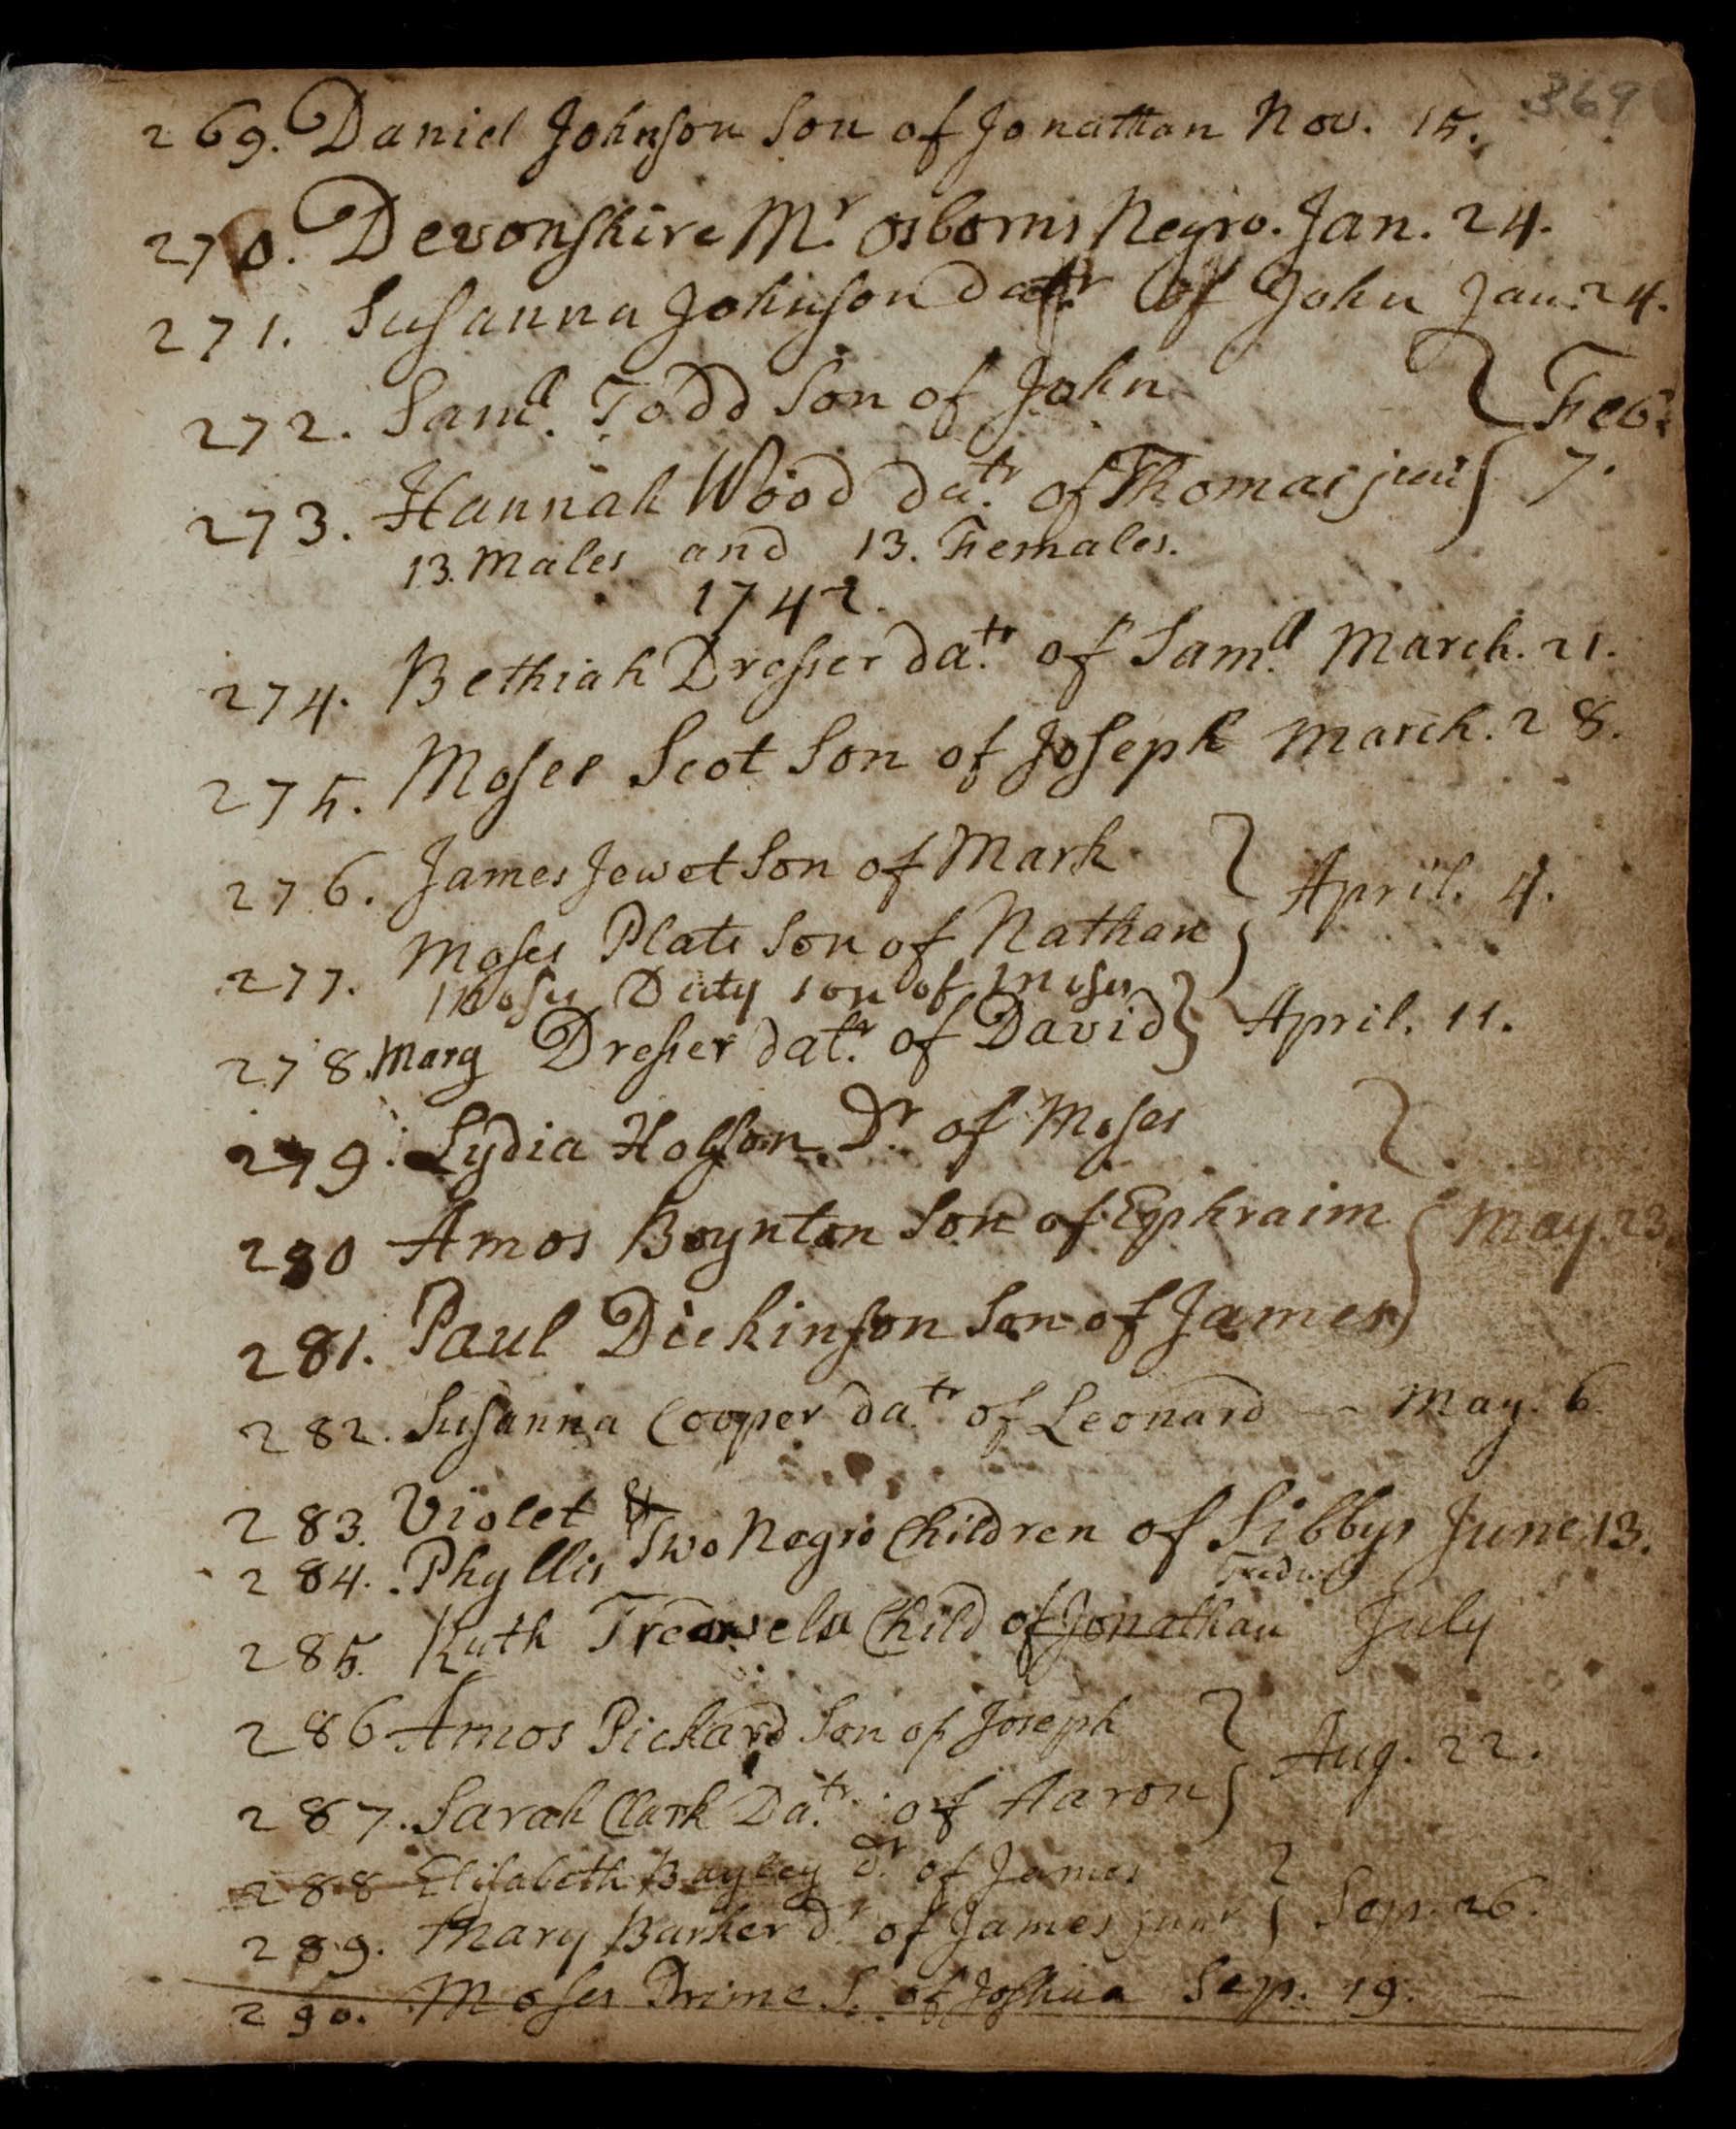 369
269. Daniel Johnson Son of Jonathan Nov. 15.
270. Devonshire Mr. Osborns Negro. Jan. 24.
271. Susanna Johnson datr. of John Jan. 24.
272. Samll. Todd Son of John } Feb.
273. Hannah Wood datr. of Thomas junr } 7.
13. Males and 13. Females.
1742.
274. Bethiah Dresser datr. of Samll. March. 21.
275. Moses Scot Son of Joseph March. 28.
276. James Jewet Son of Mark } April. 4.
277. Moses Plats Son of Nathan
Moses Duty son of Moses
278. Mary Dresser datr. of David } April. 11.
279. Lydia Hobson Dr. of Moses
280 Amos Boynton Son of Ephraim } May. 23.
281. Paul Dickinson Son of James
282. Susanna Cooper datr. of Leonard — May. 6.
283. Violet &
284. Phyllis Two Negro Children of Sibbys June. 13.
285. Ruth Child of Jonathan July
286 Amos Pickard Son of Joseph } Aug. 22.
287. Sarah Clark Datr. of Aaron
288 Elisabeth Bayley dr. of James
289. Mary Barker dr. of James junr } Sep. 26.
290. Moses Prime S. of Joshua Sep. 19. —